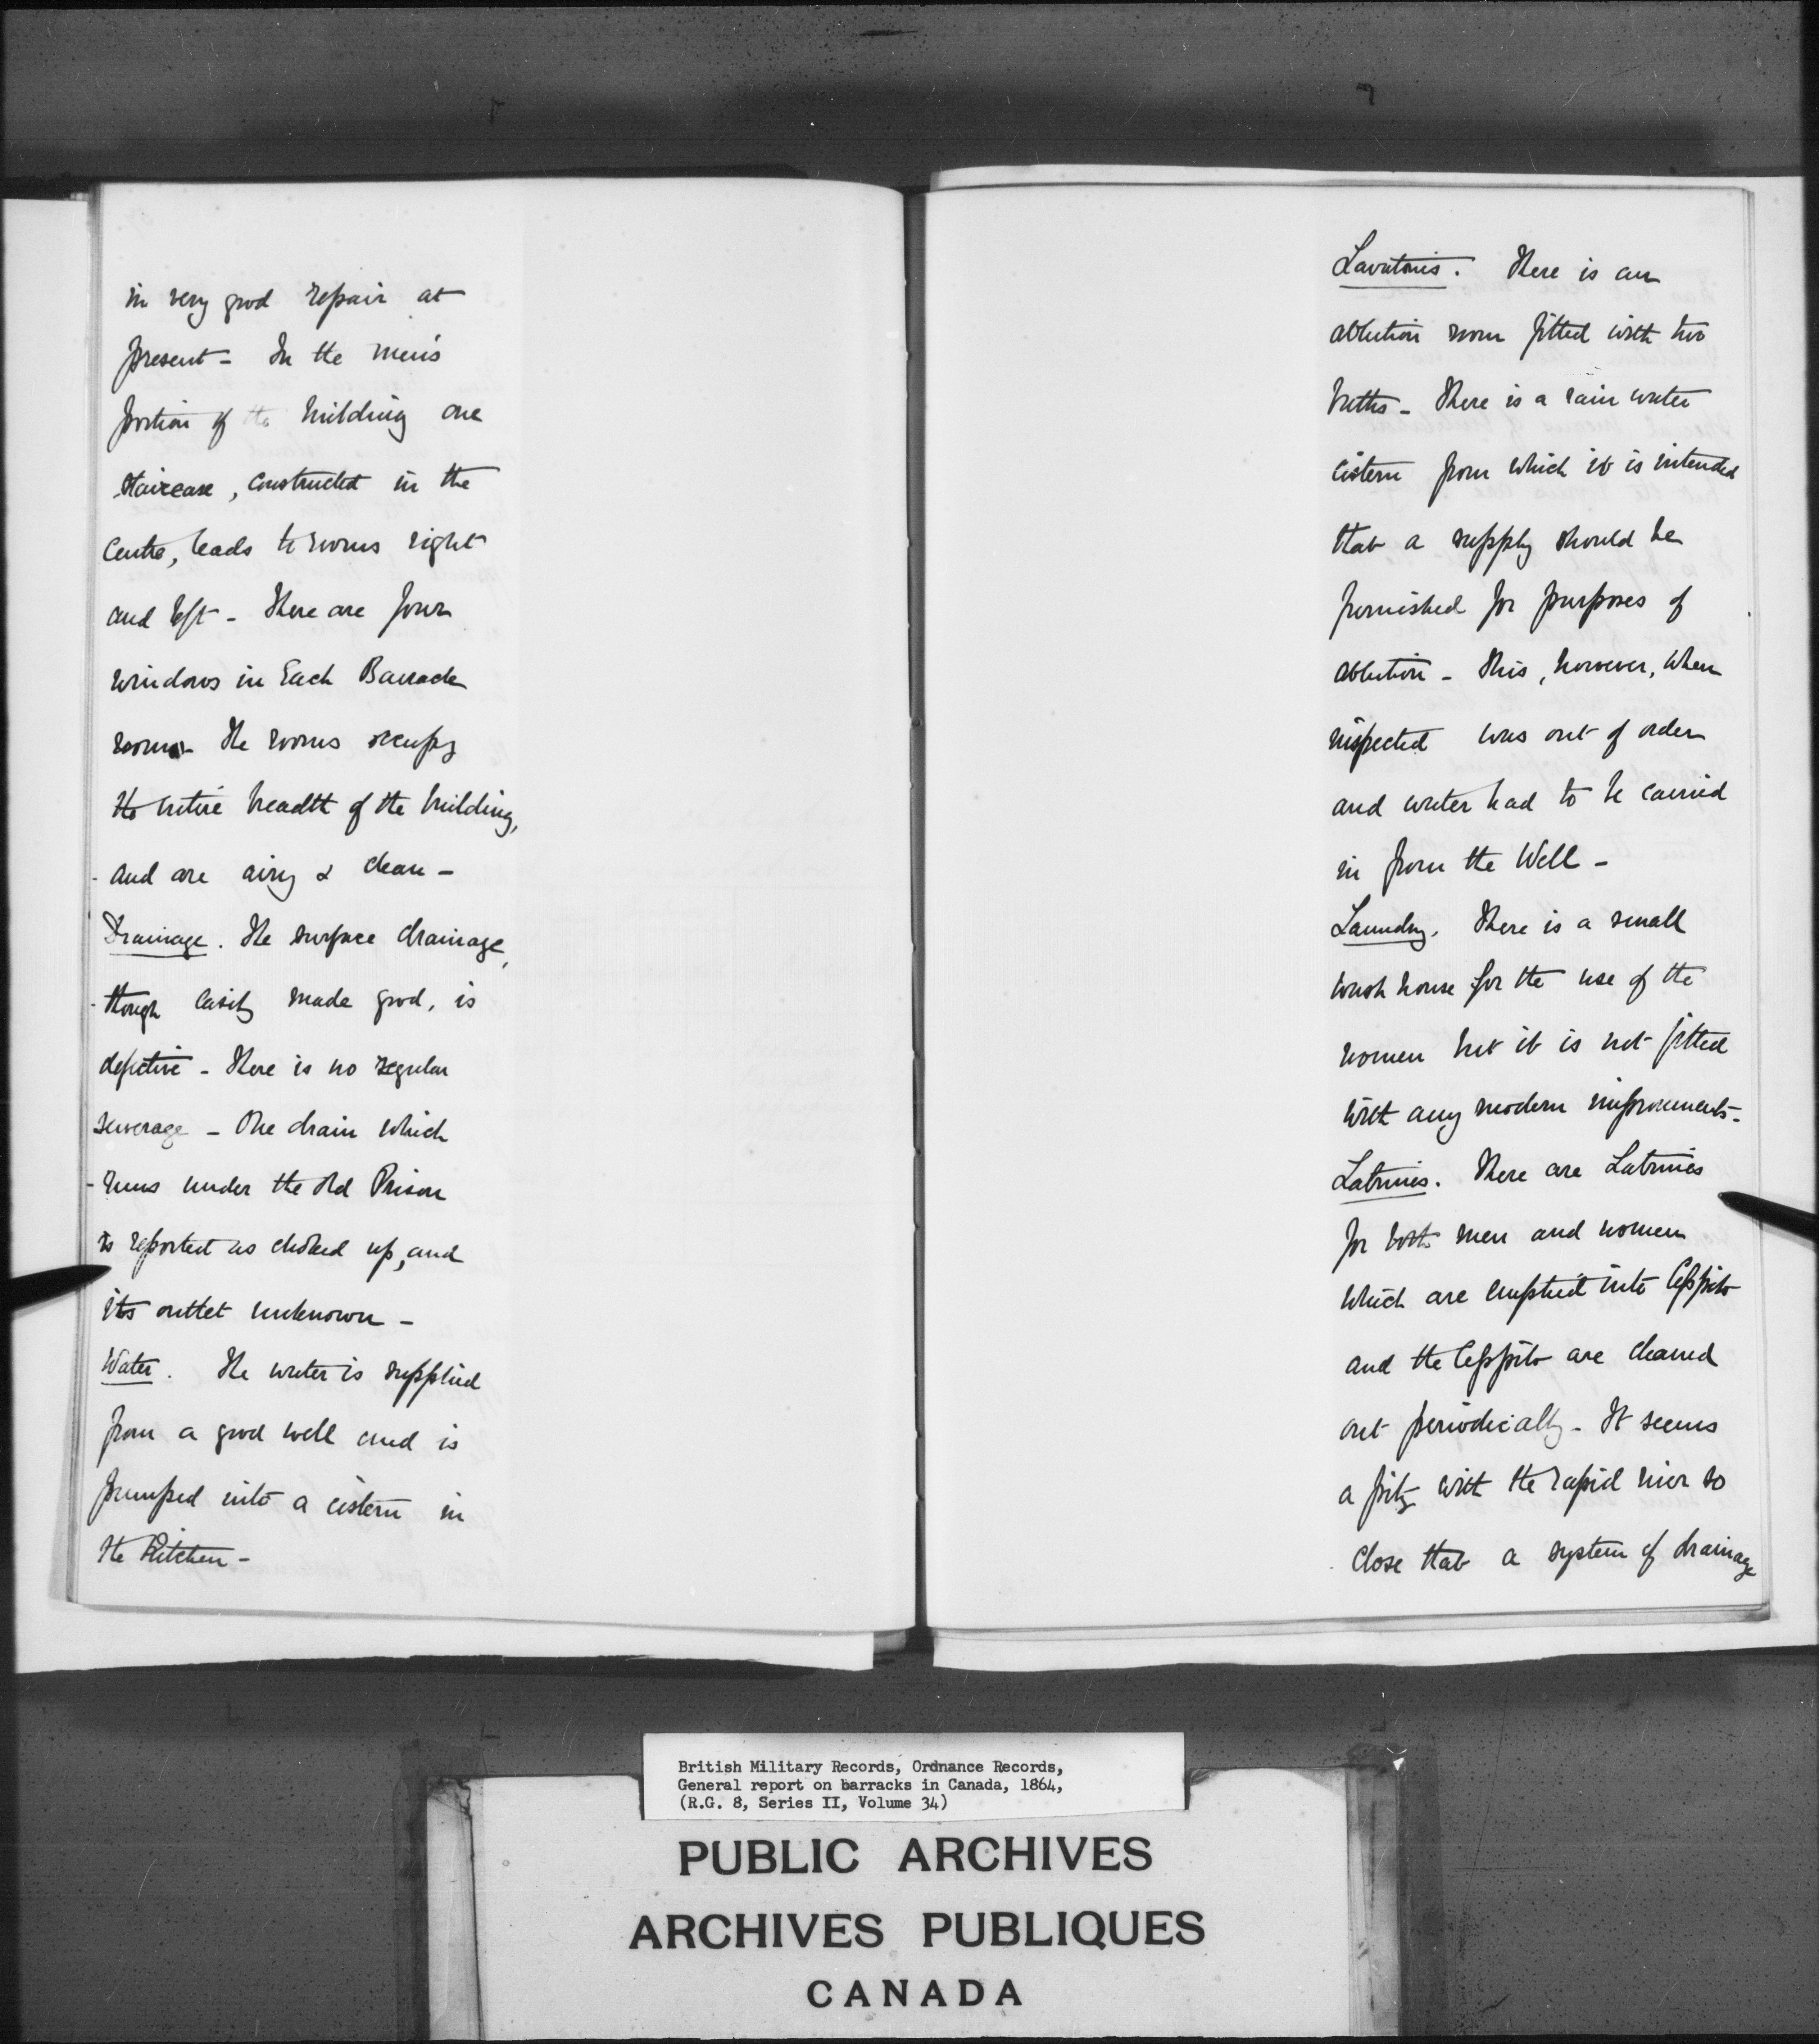 in very good repair at
present - In the men's
portion of the building one
staircase, constructed in the
centre, leads to rooms right
and left - There are four
windows in Each Barrack
room - The rooms occupy
the entire breadth of the building,
and are airy & clean -
Drainage. The surface drainage,
though easily made good, is
defective - There is no regular
sewerage - One drain which
runs under the old Prison
is reported as choked up, and
its outlet unknown -
Water. The water is supplied
from a good well and is
pumped into a cistern in
the Kitchen -
Lavatories. There is an
ablution room fitted with two
baths - There is a rain water
cistern from which it is intended
that a supply should be
furnished for purposes of
ablution - This, however, when
inspected was out of order
and water had to be carried
in from the Well -
Laundry. There is a small
wash house for the use of the
women but it is not fitted
with any modern improvements -
Latrines. There are Latrines
for both men and women
which are emptied into Cesspits
and the Cesspits are cleaned
out periodically - It seems
a pity with the rapid river so
close that a system of drainage
British Military Records, Ordnance Records,
General report on barracks in Canada, 1864,
(R.G. 8, Series II, Volume 34)
PUBLIC ARCHIVES
ARCHIVES PUBLIQUES
CANADA